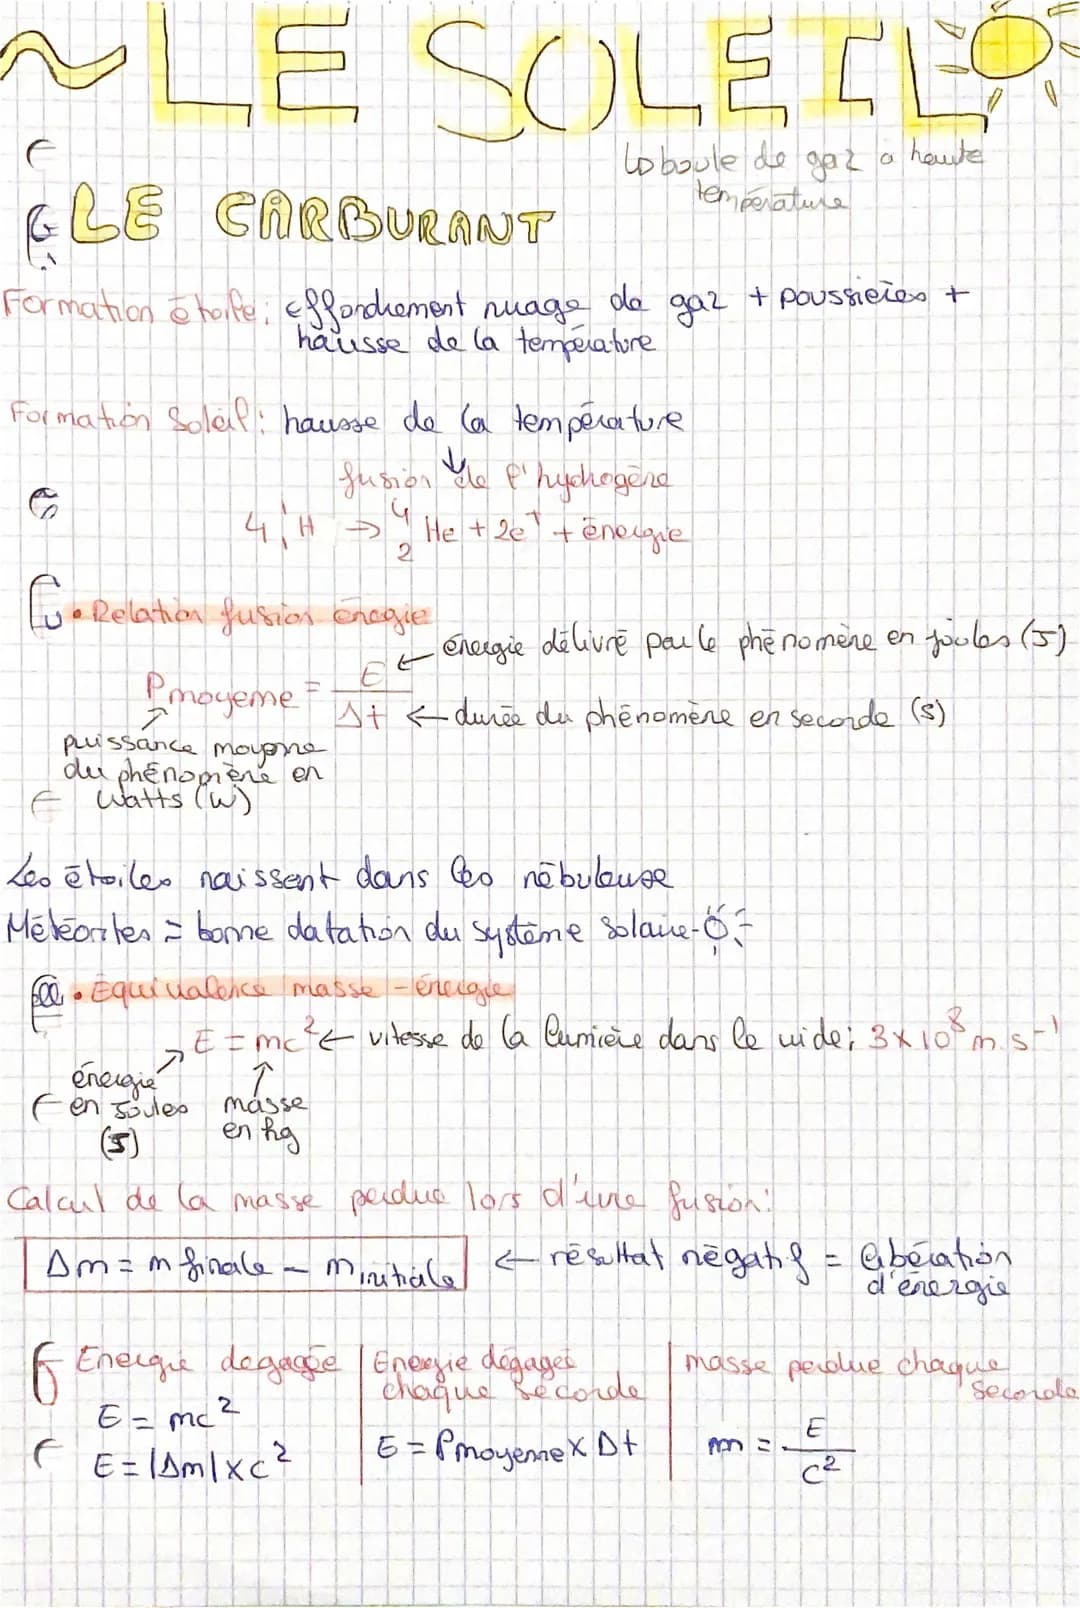 ~ LE SOLEIL
↳ boule de gaz a haute
température
LE CARBURANT
Formation étoile : effondrement nuage de gaz + poussières +
hausse de la température
Formation Soleil : hausse de la température
↓
fusion de l'hydrogène
4 ¹₁H → ⁴₂He + 2e⁺ + énergie
• Relation fusion énergie
Pmoyenne = E / Δt
← énergie délivré par le phénomène en joules (J)
← durée du phénomène en seconde (s)
puissance moyenne
du phénomène en
Watts (W)
Les étoiles naissent dans les nébuleuse
Météorites = bonne datation du système solaire
• Équivalence masse-énergie
E = mc² ← vitesse de la lumière dans le vide ; 3 x 10⁸ m.s⁻¹
énergie
en Joules
(J)
masse
en kg
Calcul de la masse perdue lors d'une fusion :
Δm = m finale - m initiale ← résultat négatif = libération
d'énergie
Énergie dégagée
E = mc²
E = |Δm| x c²
Énergie dégagée
chaque seconde
E = Pmoyenne x Δt
masse perdue chaque
seconde
m = E / c²